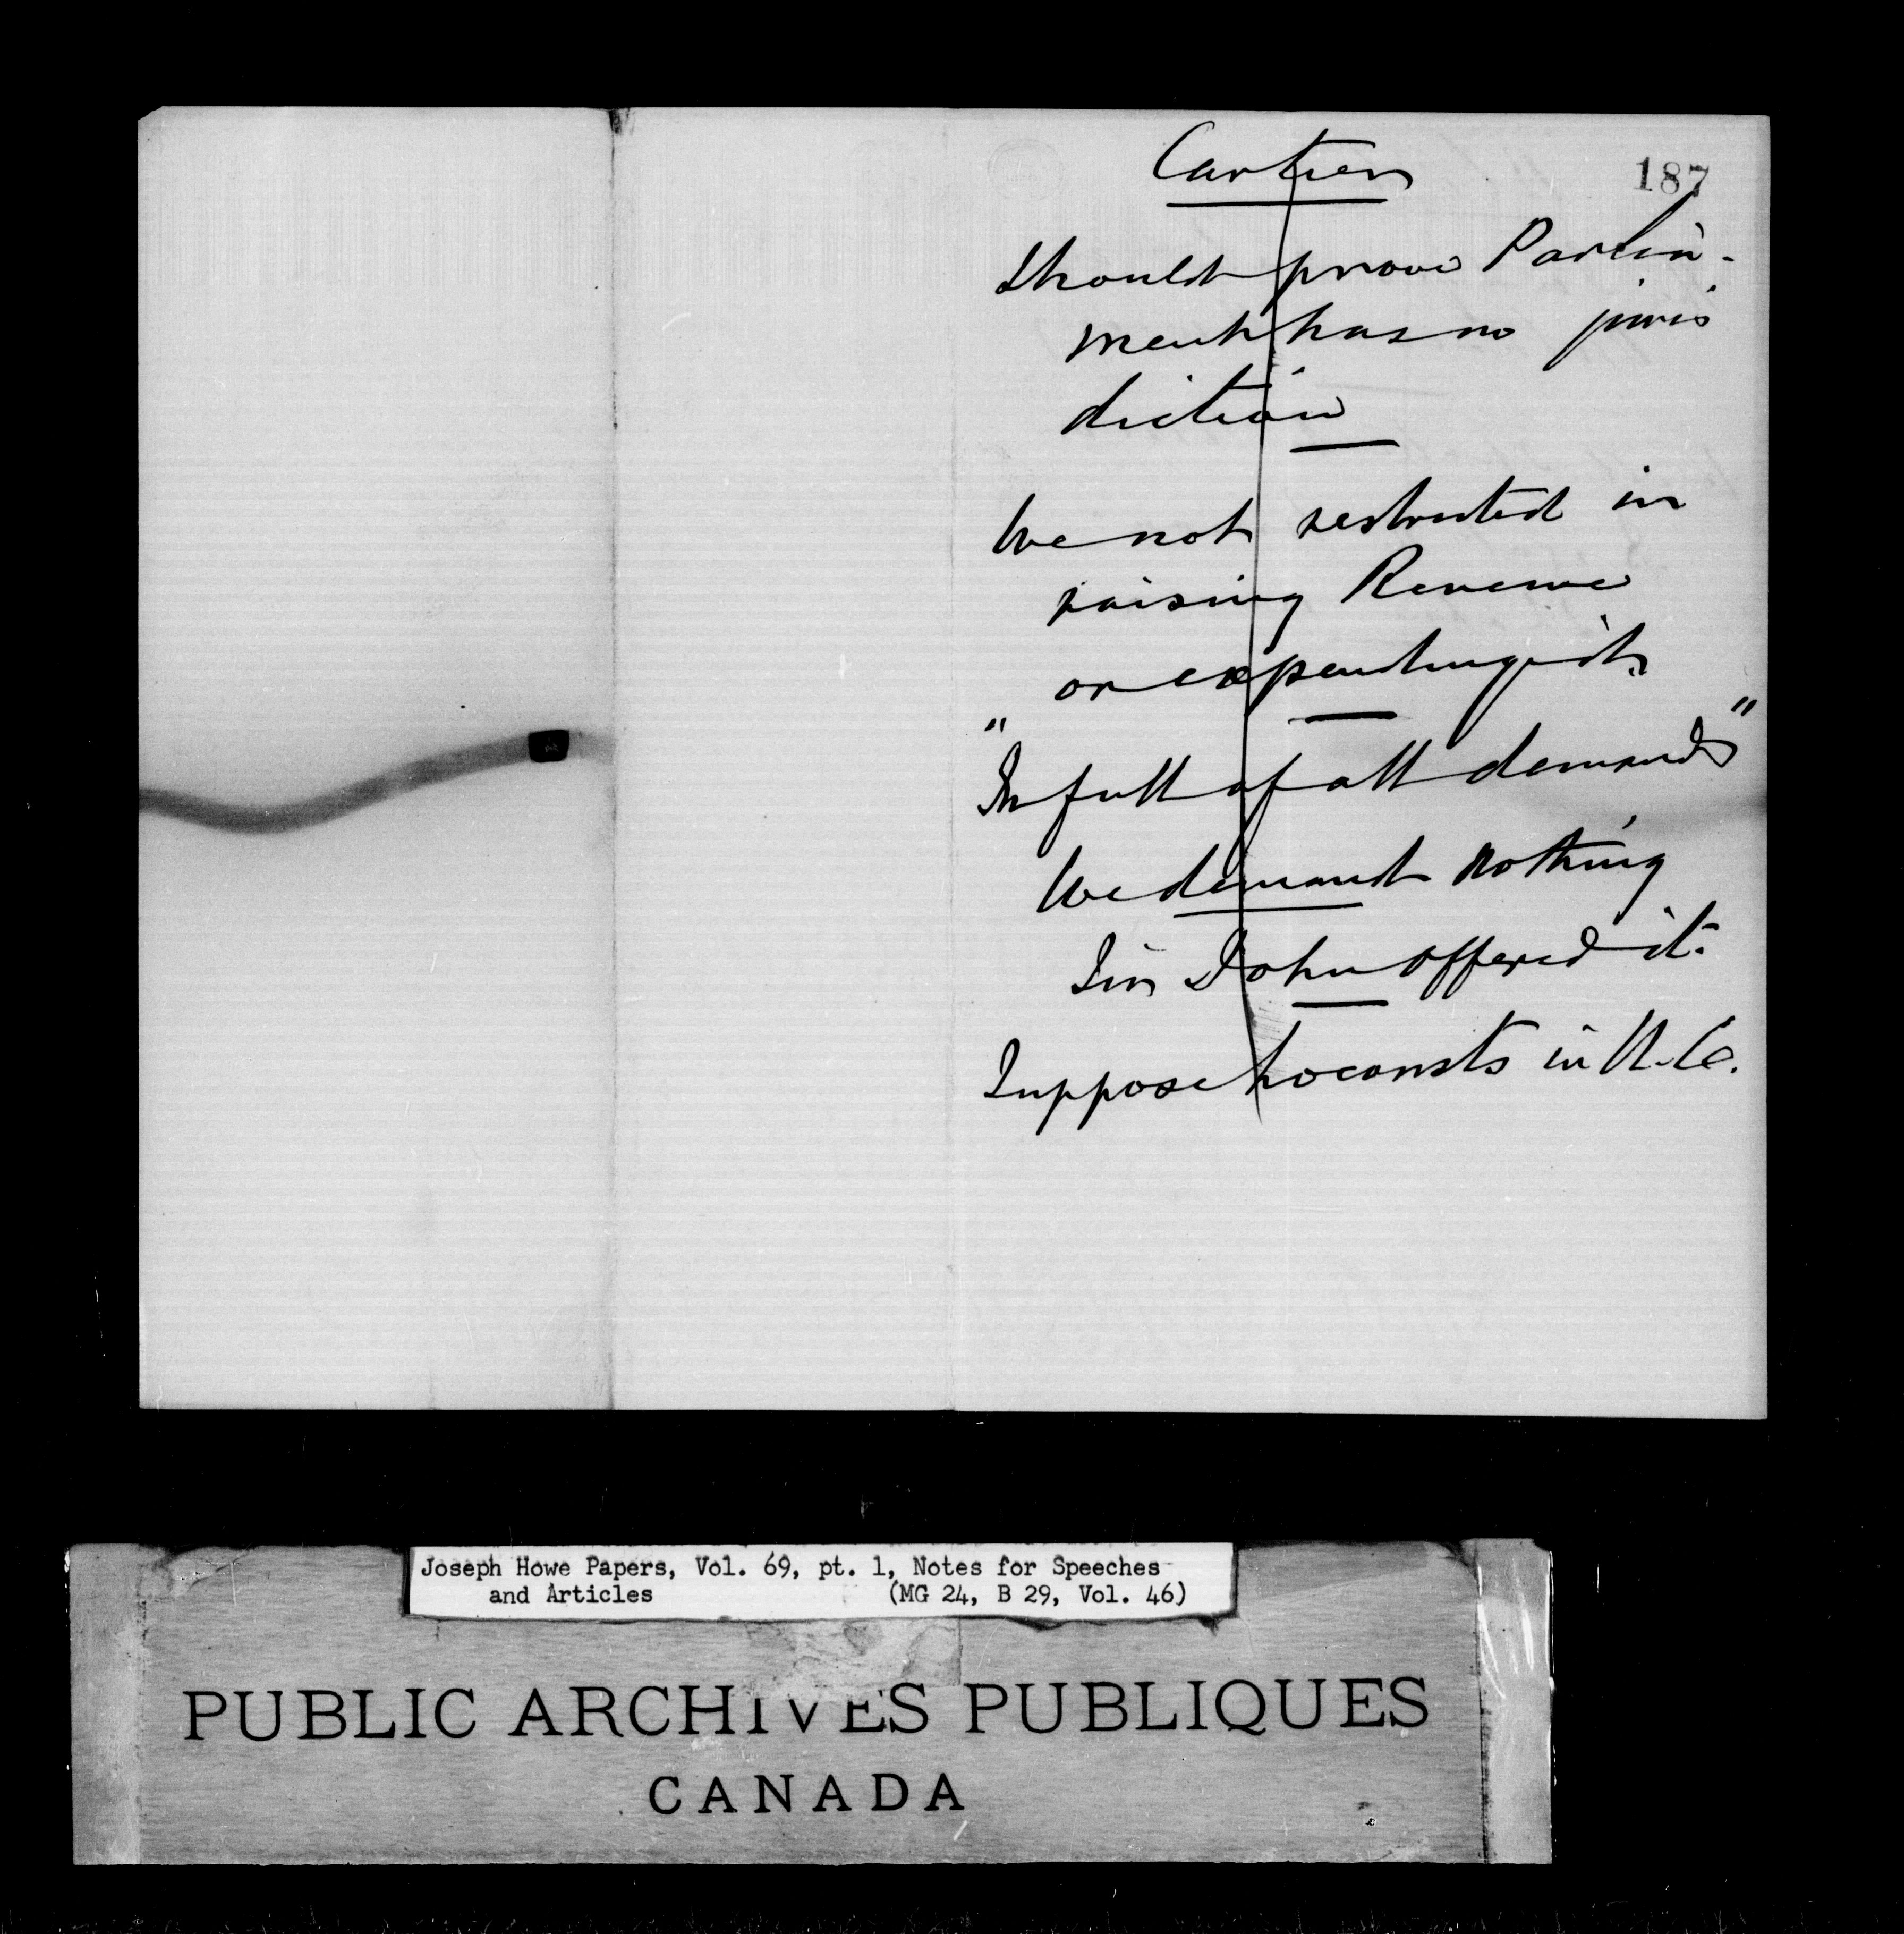 Cartier
187
Should prove Parlia-
ment has no juris
diction
We not restricted in
raising Revenue
or expending it.
"In full of all demands"
We demand nothing
Sir John offered it.
Suppose in
Joseph Howe Papers, Vol. 69, pt. 1, Notes for Speeches
and Articles (MG 24, B 29, Vol. 46)
PUBLIC ARCHIVES PUBLIQUES
CANADA